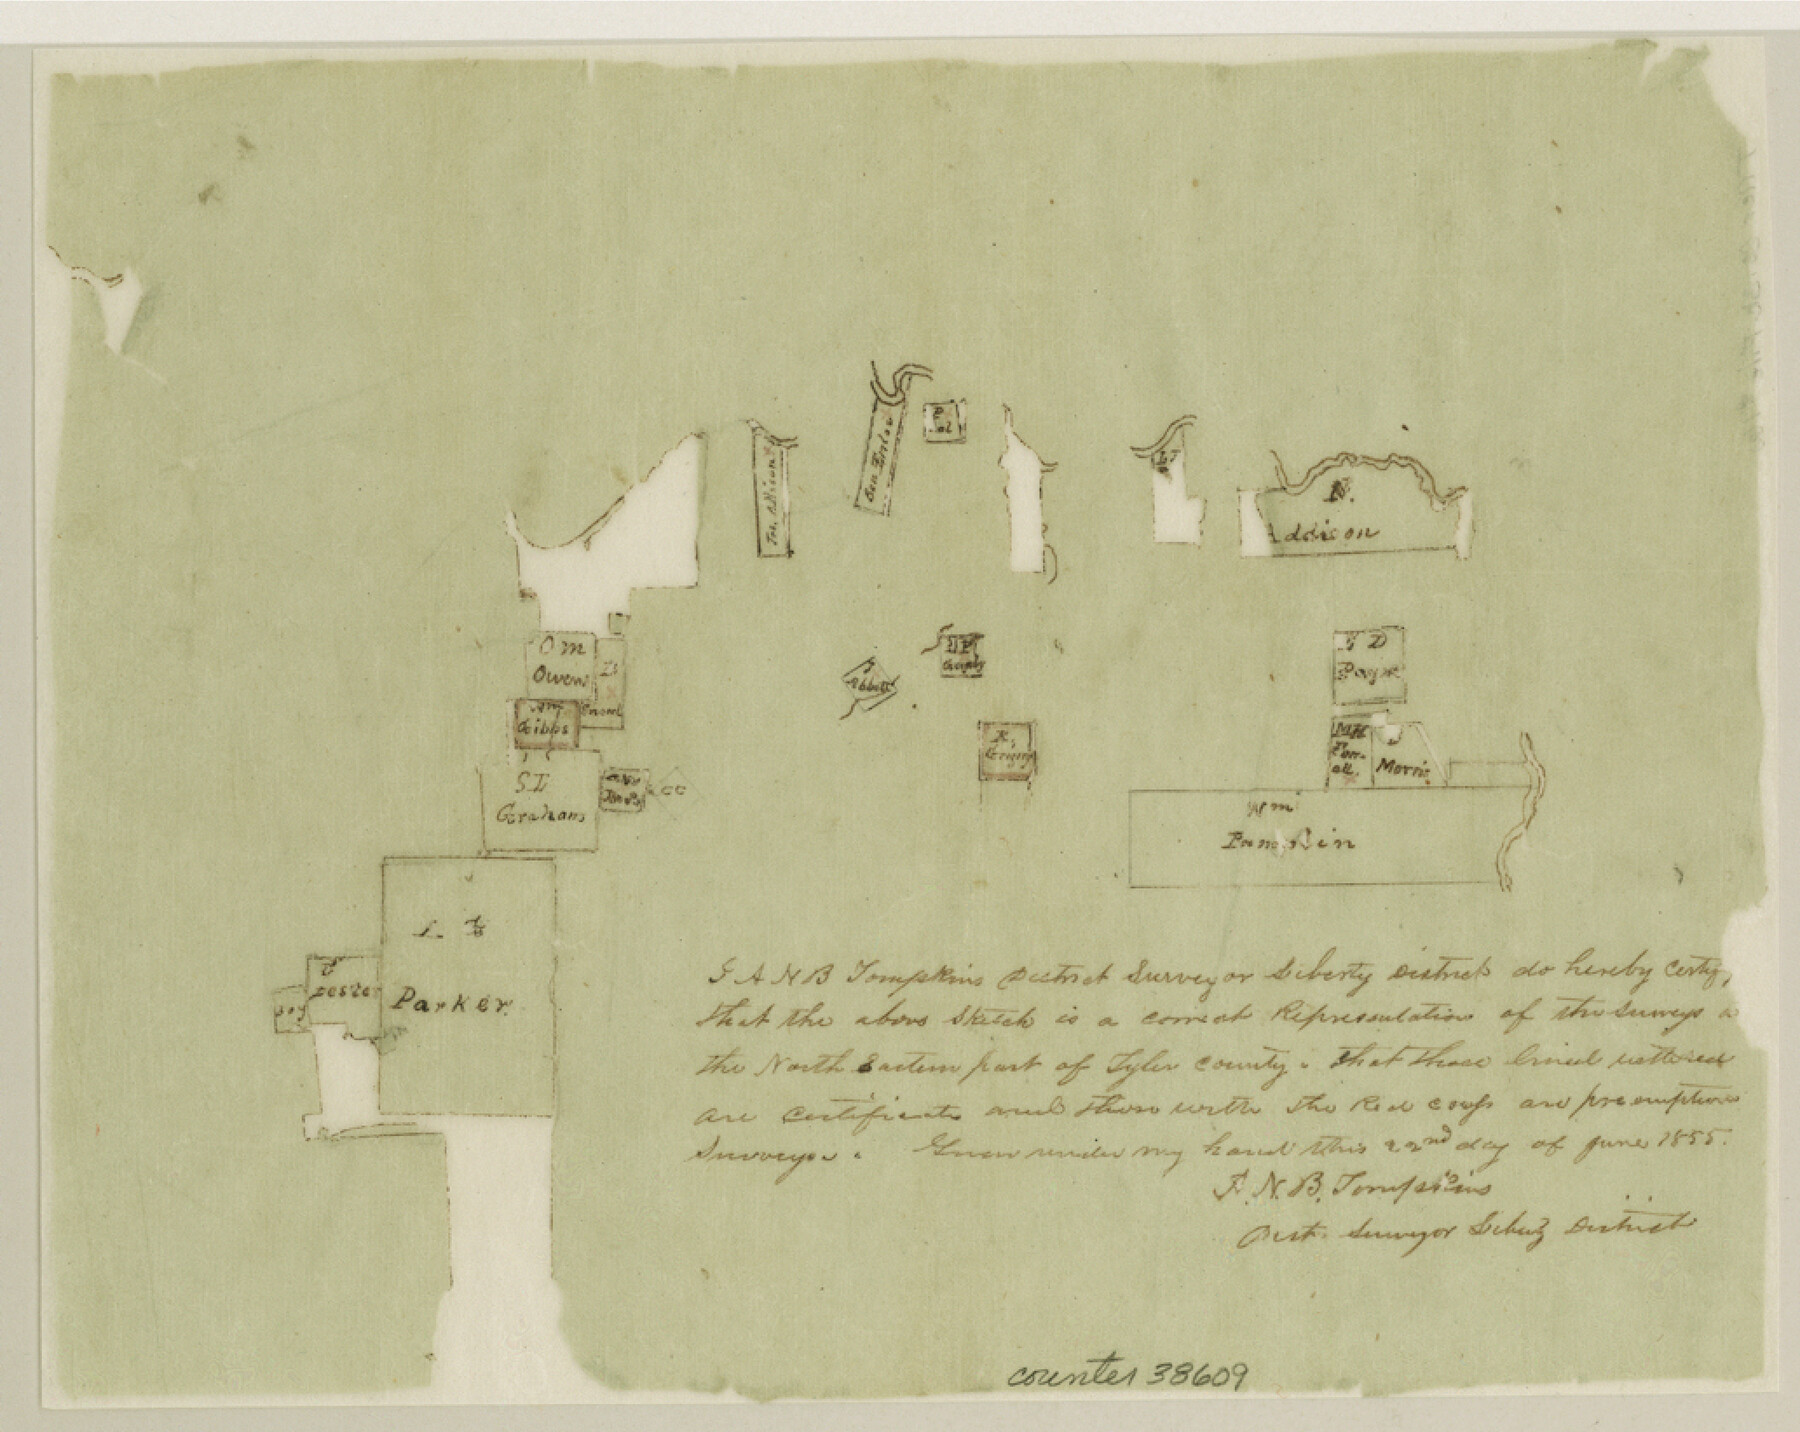 P
Jas. Allison
Ben
LT
N.
Addison
O m
Owens
Wm
Gibbs
S L
Grahams
CC
Abbott
R.
D
Payne
M H
J
Morris
Wm
L
Parker
I A N B Tompkins District Surveyor Liberty District do hereby certify,
that the above Sketch is a correct Representation of the surveys
the North Eastern part of Tyler county. that those lined
are certificate and those with the Red cross are preemption
Surveys. Given under my hand this 22nd day of June 1855.
A. N. B. Tompkins
Dist. Surveyor Liberty District
counter 38609